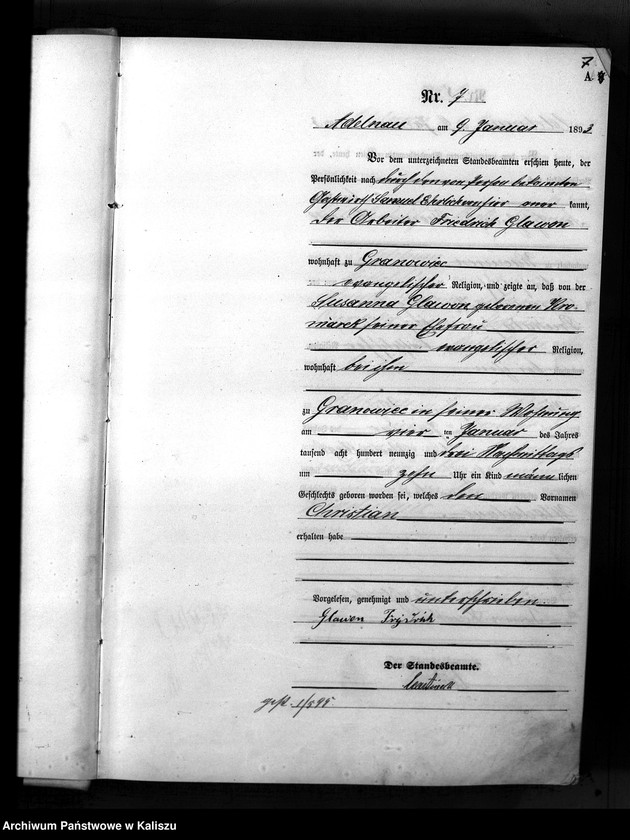 7
A
Nr. 7
Adelnau am 9. Januar 1893
Vor dem unterzeichneten Standesbeamten erschien heute, der
Persönlichkeit nach durch den von Person bekannten
Gastwirth Samuel Ehrlich von hier aner kannt,
Der Arbeiter Friedrich Glawon
wohnhaft zu Granowiec
evangelischer Religion, und zeigte an, daß von der
Susanna Glawon geborenen
seiner Ehefrau
evangelischer Religion,
wohnhaft bei ihm
zu Granowiec in seiner Wohnung
am vier ten Januar des Jahres
tausend acht hundert neunzig und drei Nachmittags
um zehn Uhr ein Kind männ lichen
Geschlechts geboren worden sei, welches den Vornamen
Christian
erhalten habe
Vorgelesen, genehmigt und unterschrieben
Glawon
Der Standesbeamte.
Archiwum Państwowe w Kaliszu